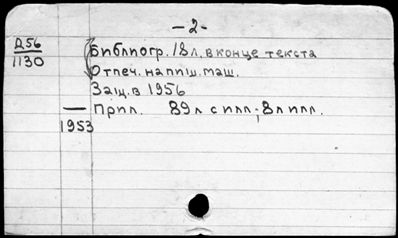 -2-
Д56
1130
Библиогр. 18 л. в конце текста
Отпеч. на пиш. маш.
Защ. в 1956
— Прил. 89 л с илл.; 8 л илл.
1953